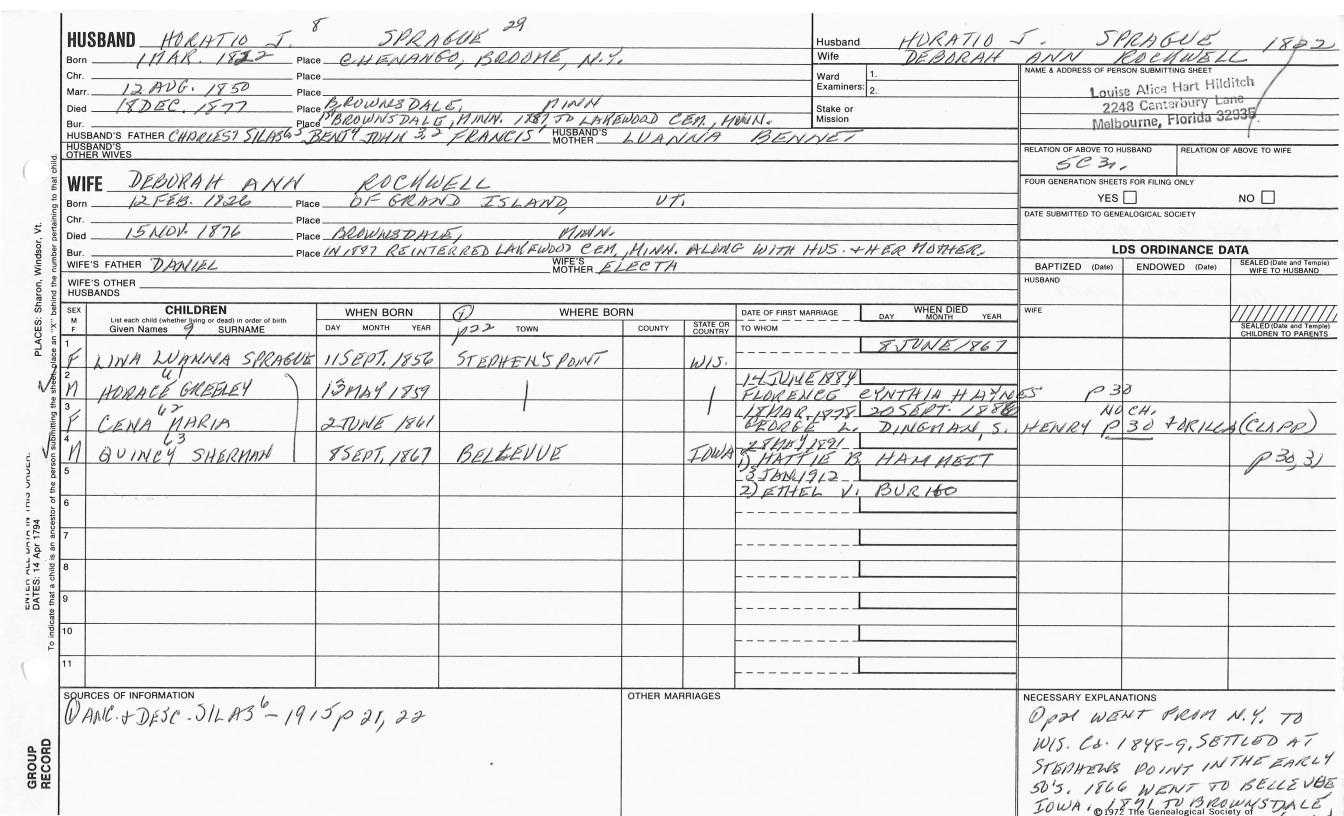 8 29
HUSBAND HORATIO J. SPRAGUE
Born 1 MAR. 1822 Place CHENANGO, BROOME, N.Y.
Chr. Place
Marr. 12 AUG. 1850 Place
Died 18 DEC. 1877 Place BROWNSDALE, MINN
Bur. Place BROWNSDALE, MINN. 1897 TO LAKEWOOD CEM, MINN.
HUSBAND'S FATHER CHARLES7 SILAS6,5 BENJ4 JOHN 3,2 FRANCIS1 HUSBAND'S MOTHER LUANNA BENNET
HUSBAND'S OTHER WIVES
WIFE DEBORAH ANN ROCKWELL
Born 12 FEB. 1826 Place OF GRAND ISLAND, VT.
Chr. Place
Died 15 NOV. 1876 Place BROWNSDALE, MINN.
Bur. Place IN 1897 REINTERRED LAKEWOOD CEM, MINN. ALONG WITH HUS. + HER MOTHER.
WIFE'S FATHER DANIEL WIFE'S MOTHER ELECTA
WIFE'S OTHER HUSBANDS
Husband HORATIO J. SPRAGUE 1822
Wife DEBORAH ANN ROCKWELL
Ward Examiners: 1.
2.
Stake or Mission
NAME & ADDRESS OF PERSON SUBMITTING SHEET
Louise Alice Hart Hilditch
2248 Canterbury Lane
Melbourne, Florida 32935
RELATION OF ABOVE TO HUSBAND RELATION OF ABOVE TO WIFE
5C3r.
FOUR GENERATION SHEETS FOR FILING ONLY
YES NO
DATE SUBMITTED TO GENEALOGICAL SOCIETY
LDS ORDINANCE DATA
BAPTIZED (Date) ENDOWED (Date) SEALED (Date and Temple) WIFE TO HUSBAND
HUSBAND
WIFE
SEALED (Date and Temple) CHILDREN TO PARENTS
SEX M F
CHILDREN
List each child (whether living or dead) in order of birth
Given Names 9 SURNAME
WHEN BORN
DAY MONTH YEAR
WHERE BORN
p22 TOWN COUNTY STATE OR COUNTRY
DATE OF FIRST MARRIAGE
TO WHOM
WHEN DIED
DAY MONTH YEAR
1 F LINA LUANNA SPRAGUE 11 SEPT. 1856 STEPHEN'S POINT WIS. 8 JUNE 1867
2 M 61 HORACE GREELEY 13 MAY 1859 14 JUNE 1884
FLORENCE CYNTHIA HAYNES p30
3 F 62 CENA MARIA 2 JUNE 1861 18 MAR. 1878 20 SEPT. 1886 NO CH.
GEORGE L. DINGMAN, S. HENRY P30 + ORILLA (CLAPP)
4 M 63 QUINCY SHERMAN 8 SEPT. 1867 BELLEVUE IOWA 28 MAY 1891
1) HATTIE B. HAMMETT p30,31
5 3 JAN. 1912
2) ETHEL V.
6
7
8
9
10
11
SOURCES OF INFORMATION
① ANC. + DESC. SILAS6 - 1915 p 21, 22
OTHER MARRIAGES
NECESSARY EXPLANATIONS
① p21 WENT FROM N.Y. TO
WIS. Ca. 1848-9. SETTLED AT
STEPHENS POINT IN THE EARLY
50'S. 1866 WENT TO BELLEVUE
IOWA. 1871 TO BROWNSDALE,
©1972 The Genealogical Society of
PLACES: Sharon, Windsor, Vt.
ENTER ALL DATA IN THIS ORDER:
DATES: 14 Apr 1794
To indicate that a child is an ancestor of the person submitting the sheet, place an "X" behind the number pertaining to that child.
GROUP RECORD